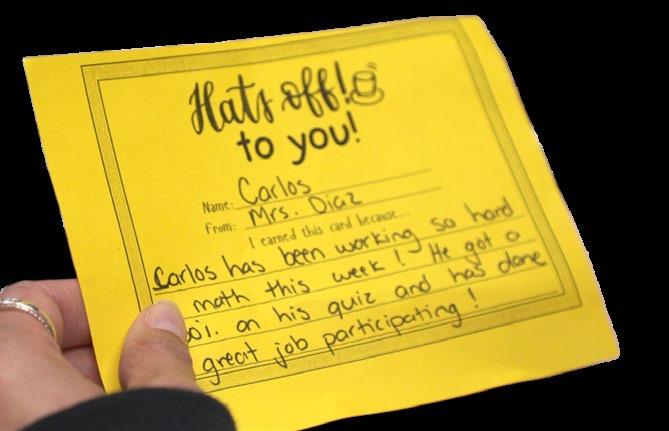 Hats off!
to you!
Name: Carlos
From: Mrs. Diaz
I earned this card because...
Carlos has been working so hard
math this week! He got a
on his quiz and has done
great job participating!